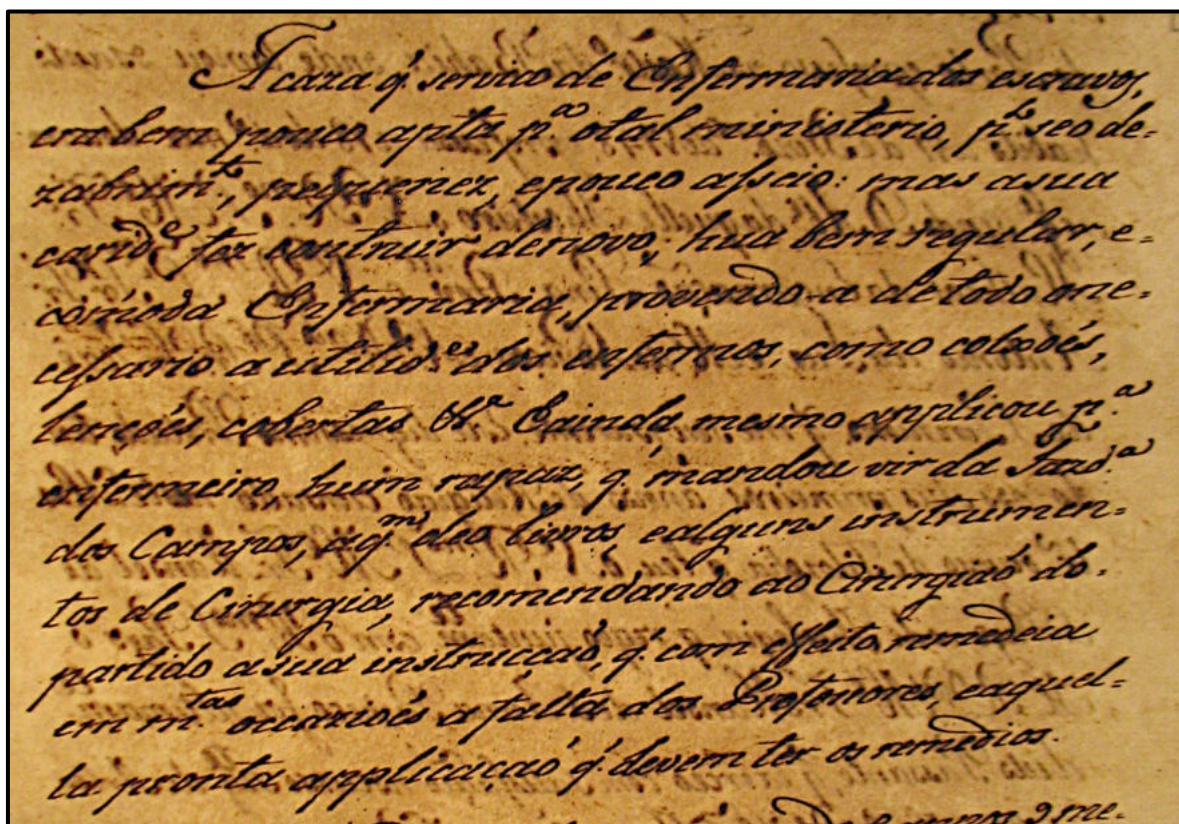 A caza q̃ servio de Enfermaria dos escravos,
era bem pouco apta p.ª o tal ministerio, p.ʳ seo de=
zabrim.ᵗᵒ, pequenez, e pouco asseio: mas a sua
carid.ᵉ fez contruir de novo, hua bem regular, e=
cómoda Enfermaria, provendo-a de todo o ne=
cessario a utilid.ᵉ dos enfermos, como colxoẽs,
lençoẽs, cobertas &.ª E ainda mesmo applicou p.ª
enfermeiro hum rapaz, q̃ mandou vir da Fazd.ª
dos Campos, a q.ᵐ deo livros e alguns instrumen=
tos de Cirurgia, recomendando ao Cirurgiaõ do=
partido a sua instrucçaõ, q̃ com effeito remedeia
em m.ᵗᵃˢ occazioẽs a falta dos Professores, e aquel=
la pronta applicaçaõ q̃ devem ter os remedios.
annos, e me=